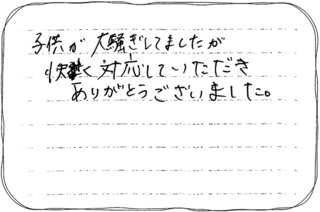 子供が大騒ぎしてましたが
快く対応していただき
ありがとうございました。